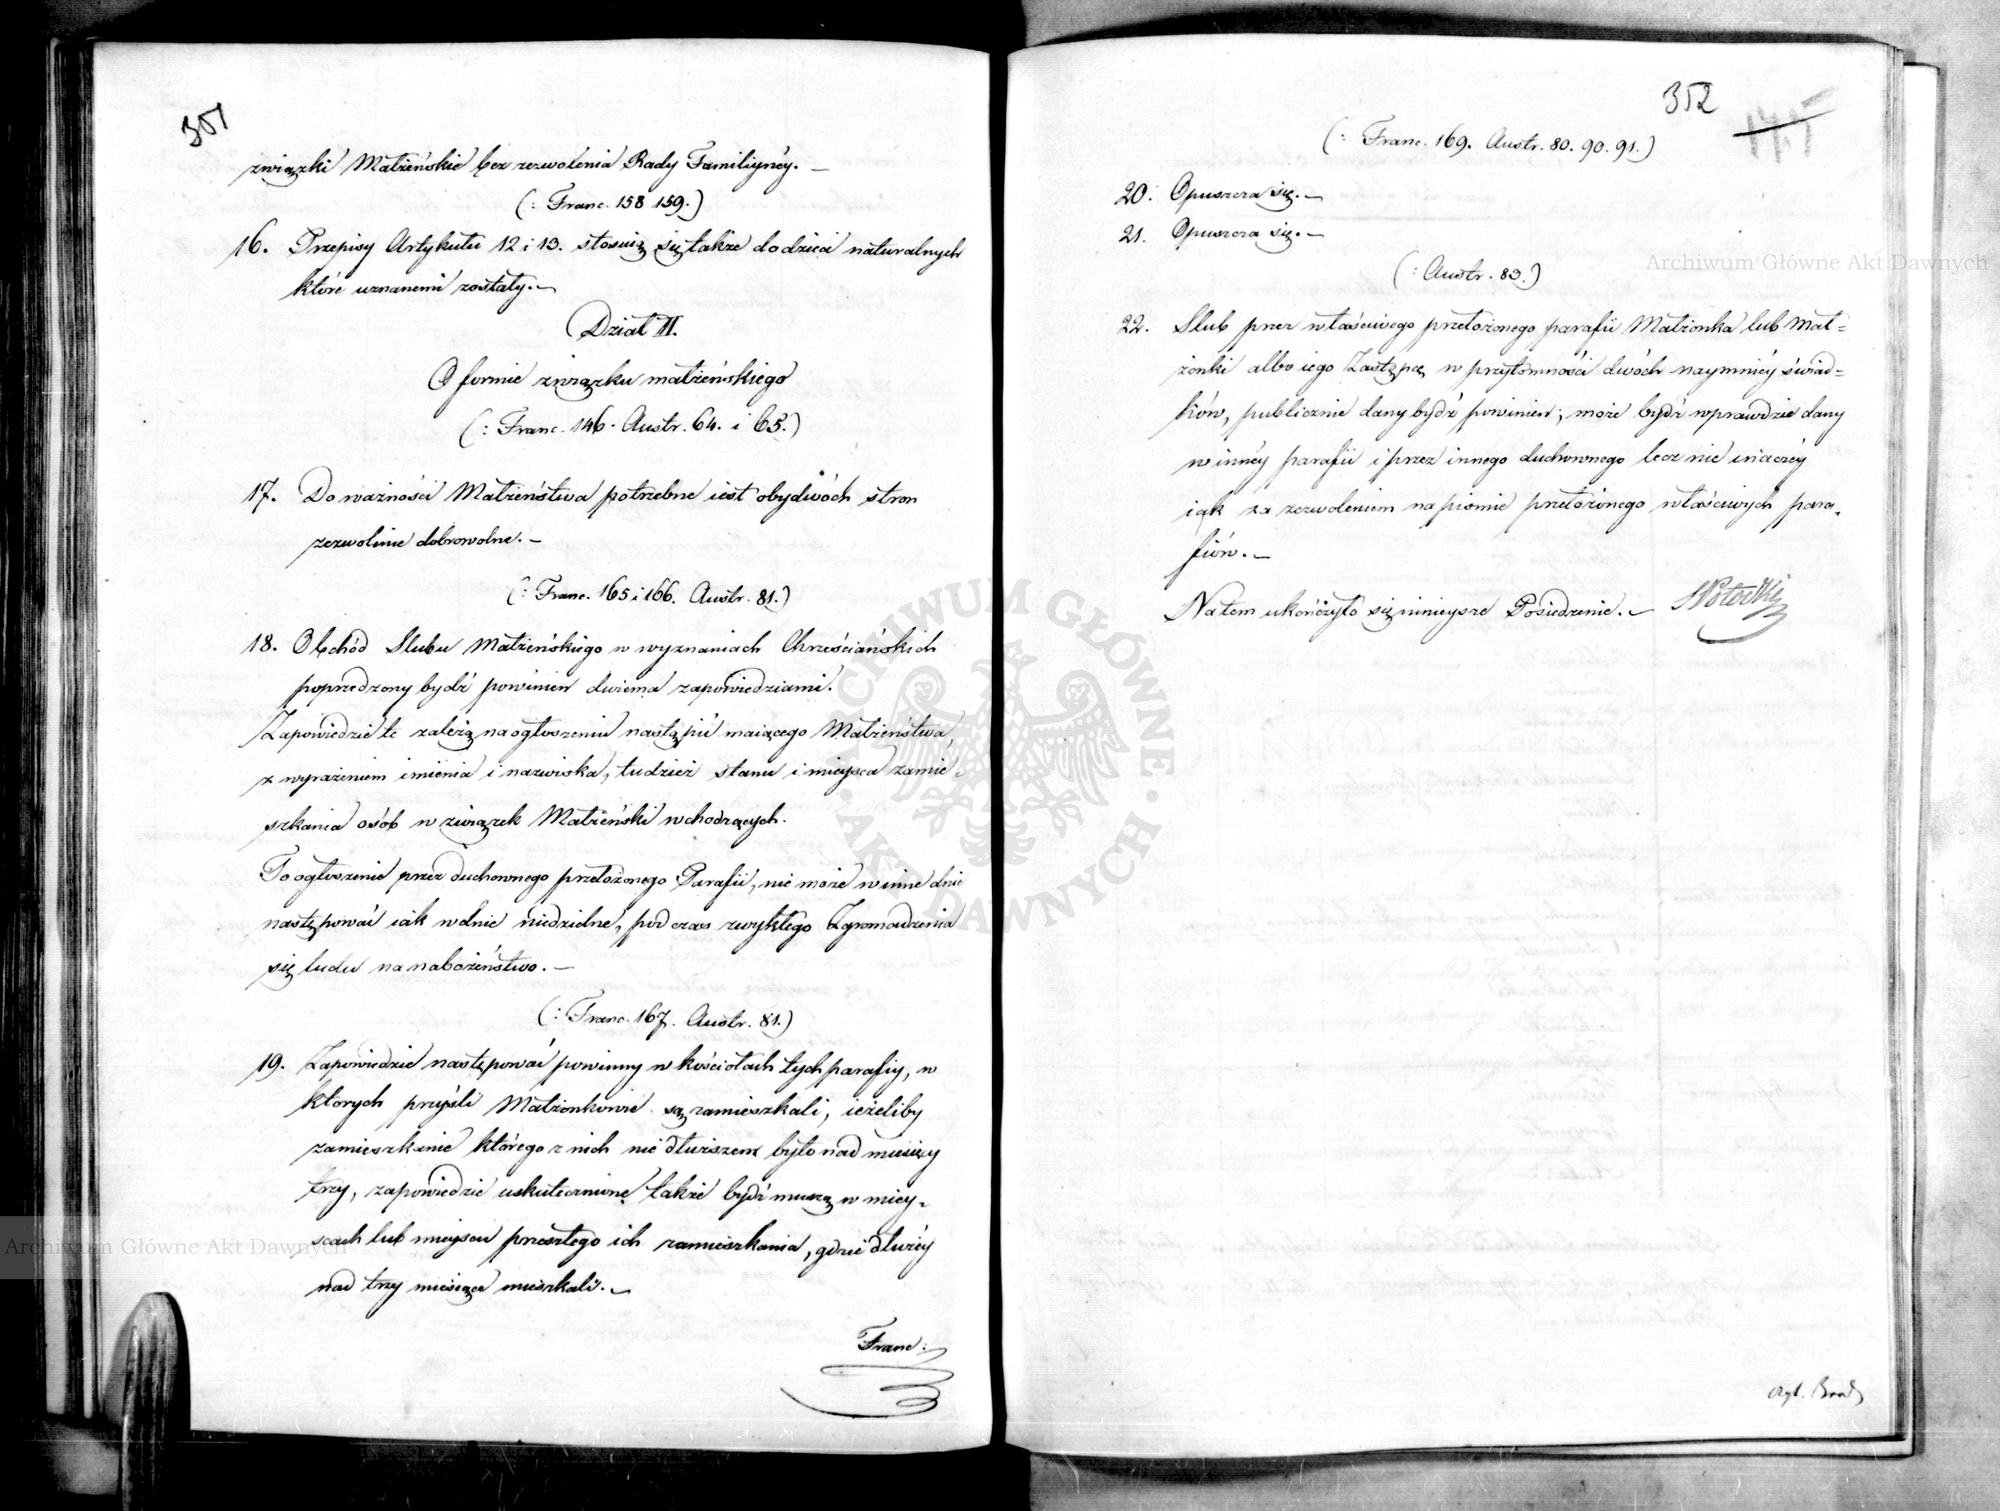 351
związki Małżeńskie bez zezwolenia Rady Familiynéy. —
(: Franc. 158 159.)
16. Przepisy Artykułu 12 i 13. stosuią się także do dzieci naturalnych
które uznanemi zostały. —
Dział II.
O formie związku małżeńskiego
(: Franc. 146. Austr. 64. i 65.)
17. Do ważności Małżeństwa potrzebne iest obydwóch stron
zezwolenie dobrowolne. —
(: Franc. 165 i 166. Austr. 81.)
18. Obchód Slubu Małżeńskiego w wyznaniach Chrześciańskich
poprzedzony bydź powinien dwiema zapowiedziami.
Zapowiedzie te zależą na ogłoszeniu nastąpić maiącego Małżeństwa,
z wyrażeniem imienia i nazwiska, tudzież stanu i mieysca zamie-
szkania osób w związek Małżeński wchodzących.
To ogłoszenie przez duchownego przełożonego Parafii, nie może w inne dnie
następować iak w dnie niedzielne, pod czas zwykłego Zgromadzenia
się ludu na nabożeństwo. —
(: Franc. 167. Austr. 81.)
19. Zapowiedzie następować powinny w kościołach tych parafiy, w
ktorych przyśli Małżonkowie są zamieszkali, ieżeliby
zamieszkanie którego z nich nie dłuższem było nad miesięcy
trzy, zapowiedzie uskutecznione także bydź muszą w miey-
scach lub mieyscu przeszłego ich zamieszkania, gdzie dłużéy
nad trzy miesiące mieszkali. —
Franc:
352
(: Franc. 169. Austr. 80. 90. 91.)
20. Opuszcza się. —
21. Opuszcza się. —
(: Austr. 83.)
22. Slub przez właściwego przełożonego parafii Małżonka lub Mał=
żonki albo iego Zastępcę w przytomności dwóch naymniéy świad=
ków, publicznie dany bydź powinien; może bydź wprawdzie dany
w innéy parafii i przez innego duchownego lecz nie inaczéy
iak za zezwoleniem na piśmie przełożonego właściwych para-
fiów. —
Na tem ukończyło się ninieysze Posiedzenie. — SPotocki
Archiwum Główne Akt Dawnych
Archiwum Główne Akt Dawnych
ARCHIWUM GŁÓWNE · AKT DAWNYCH ·